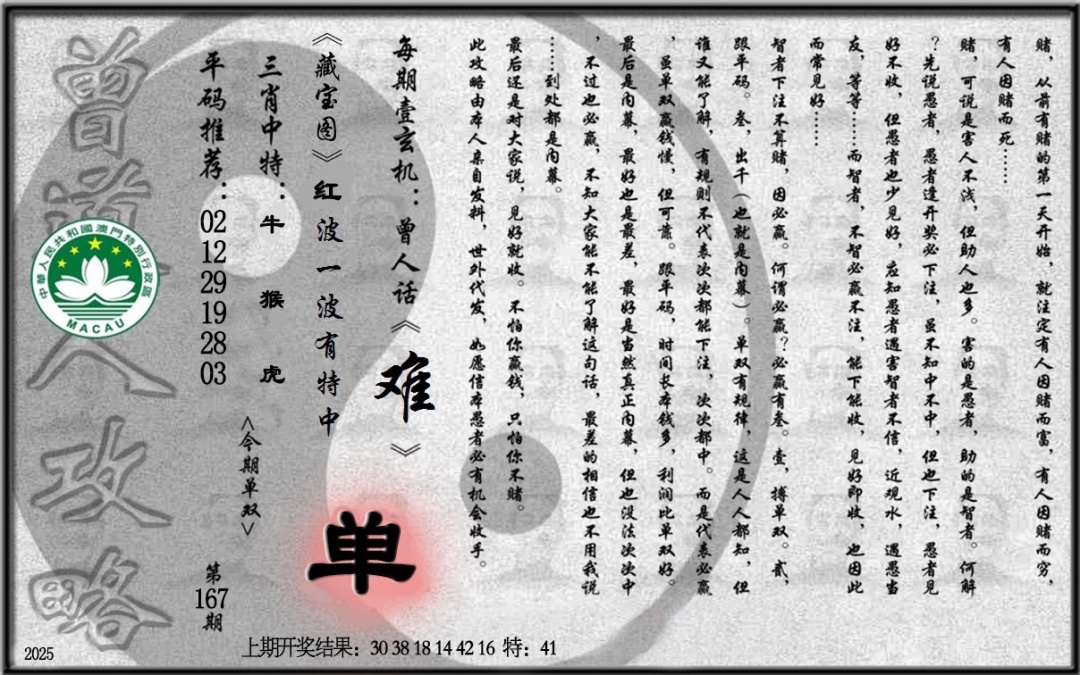 赌，从前有赌的第一天开始，就注定有人因赌而富，有人因赌而穷，
有人因赌而死……
赌，可说是害人不浅，但助人也多。害的是愚者，助的是智者。何解
？先说愚者，愚者逢开奖必下注，虽不知中不中，但也下注，愚者见
好不收，但愚者也少见好，应知愚者遇害智者不信，近观水，遇愚当
友，等等……而智者，不智必赢不注，能下能收，见好即收，也因此
而常见好……
智者下注不算赌，因必赢。何谓必赢？必赢有叁。壹，搏单双。贰，
跟平码。叁，出千（也就是内幕）。单双有规律，这是人人都知，但
谁又能了解，有规则不代表次次都能下注，次次都中。而是代表必赢
，虽单双赢钱慢，但可靠。跟平码，时间长本钱多，利润比单双好。
最后是内幕，最好也是最差，最好是当然真正内幕，但也没法次次中
，不过也必赢，不知大家能不能了解这句话，最差的相信也不用我说
……到处都是内幕。
最后还是对大家说，见好就收。不怕你赢钱，只怕你不赌。
此攻略由本人亲自发料，世外代发，如愿信本愚者必有机会收手。
每期壹玄机：曾人话《难》
《藏宝图》红波一波有特中
单
三肖中特：牛 猴 虎
<今期单双>
平码推荐：02 12 29 19 28 03
第167期
曾道人攻略
中華人民共和國澳門特別行政區
MACAU
2025
上期开奖结果：30 38 18 14 42 16 特：41